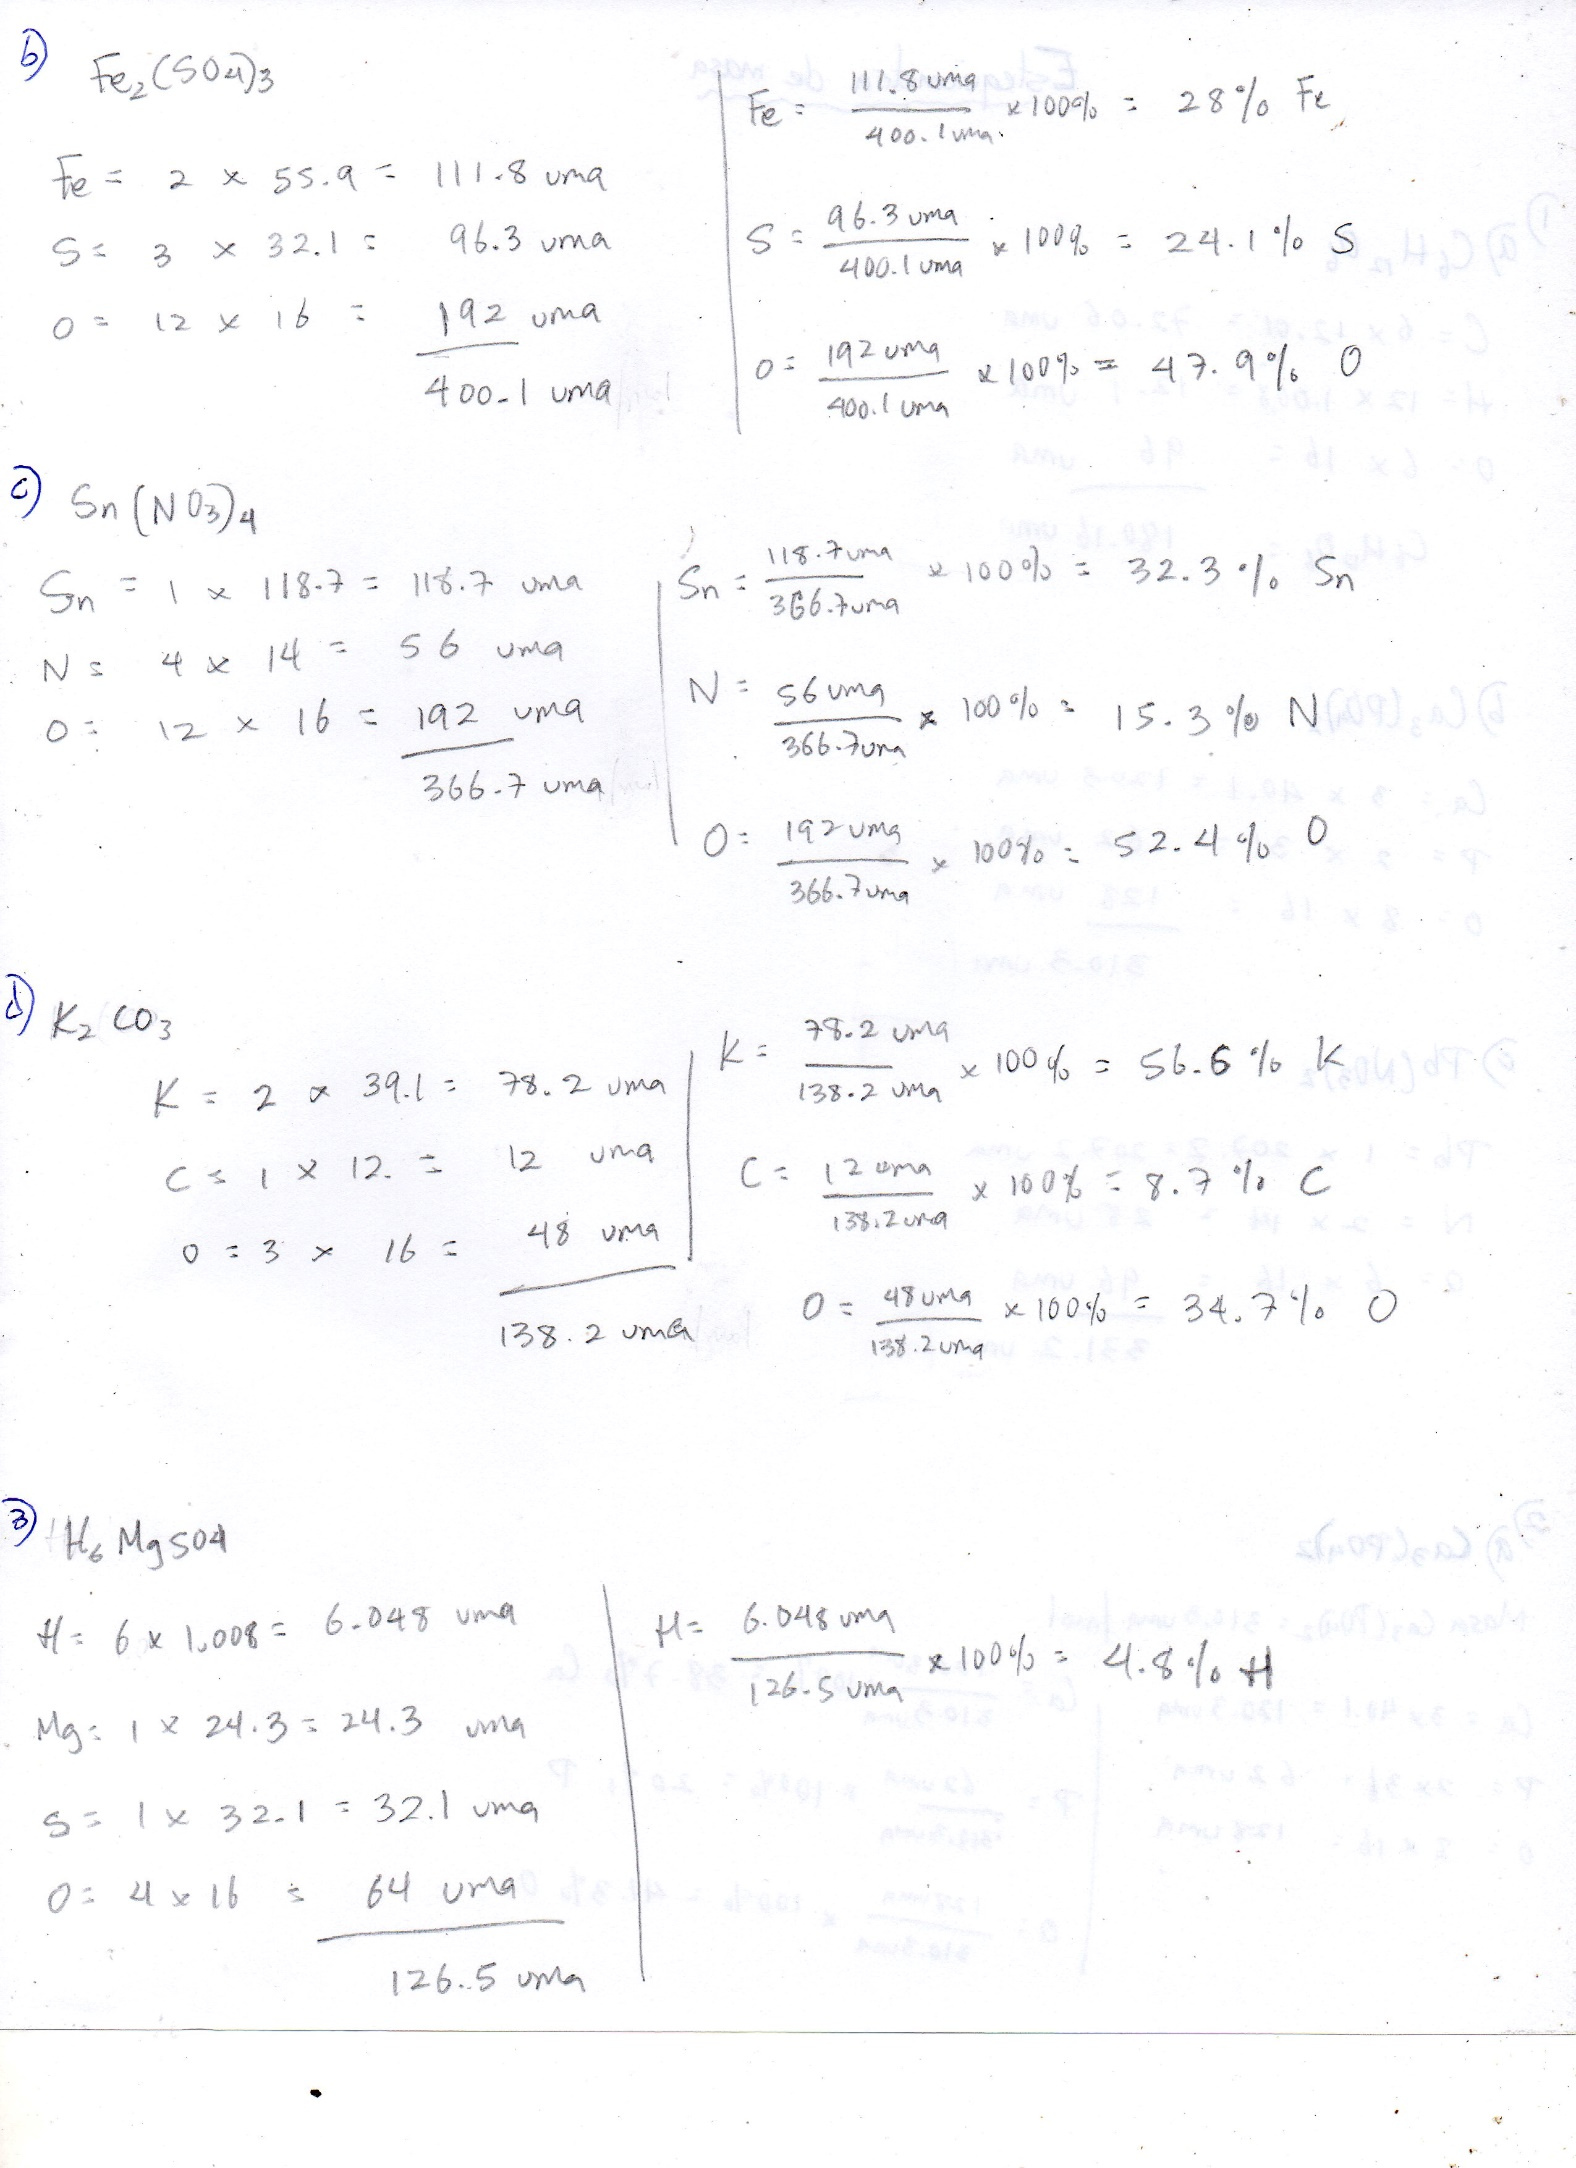 b) Fe2(SO4)3
Fe = 2 x 55.9 = 111.8 uma
S = 3 x 32.1 = 96.3 uma
O = 12 x 16 = 192 uma
400.1 uma
Fe = 111.8 uma / 400.1 uma x 100% = 28% Fe
S = 96.3 uma / 400.1 uma x 100% = 24.1% S
O = 192 uma / 400.1 uma x 100% = 47.9% O
c) Sn(NO3)4
Sn = 1 x 118.7 = 118.7 uma
N = 4 x 14 = 56 uma
O = 12 x 16 = 192 uma
366.7 uma
Sn = 118.7 uma / 366.7 uma x 100% = 32.3% Sn
N = 56 uma / 366.7 uma x 100% = 15.3% N
O = 192 uma / 366.7 uma x 100% = 52.4% O
d) K2CO3
K = 2 x 39.1 = 78.2 uma
C = 1 x 12. = 12 uma
O = 3 x 16 = 48 uma
138.2 uma
K = 78.2 uma / 138.2 uma x 100% = 56.6% K
C = 12 uma / 138.2 uma x 100% = 8.7% C
O = 48 uma / 138.2 uma x 100% = 34.7% O
3) H6MgSO4
H = 6 x 1.008 = 6.048 uma
Mg = 1 x 24.3 = 24.3 uma
S = 1 x 32.1 = 32.1 uma
O = 4 x 16 = 64 uma
126.5 uma
H = 6.048 uma / 126.5 uma x 100% = 4.8% H